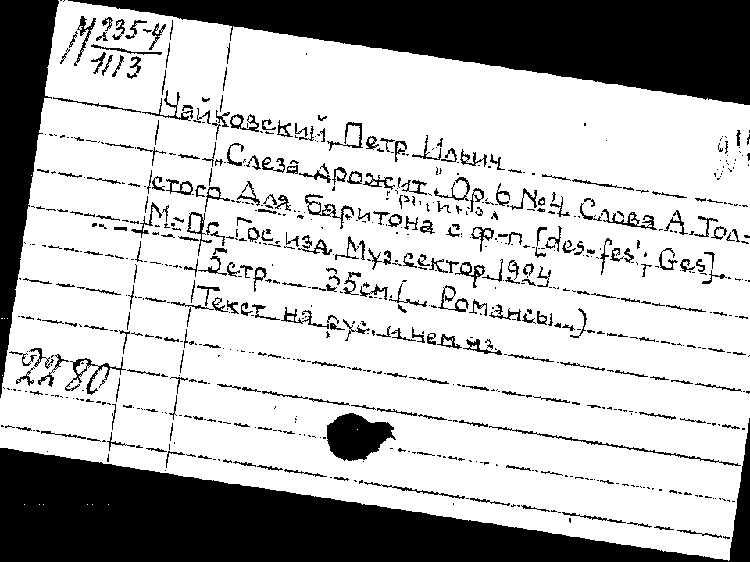 М 235-4
1113
Чайковский, Петр Ильич
„Слеза дрожит". Op. 6 №4. Слова А. Тол-
стого Для баритона с ф-п. [des-fes'; Ges].
М-Пг, Гос. изд. Муз. сектор, 1924
5 стр. 35 см (... Романсы...)
Текст на рус. и нем. яз.
2280